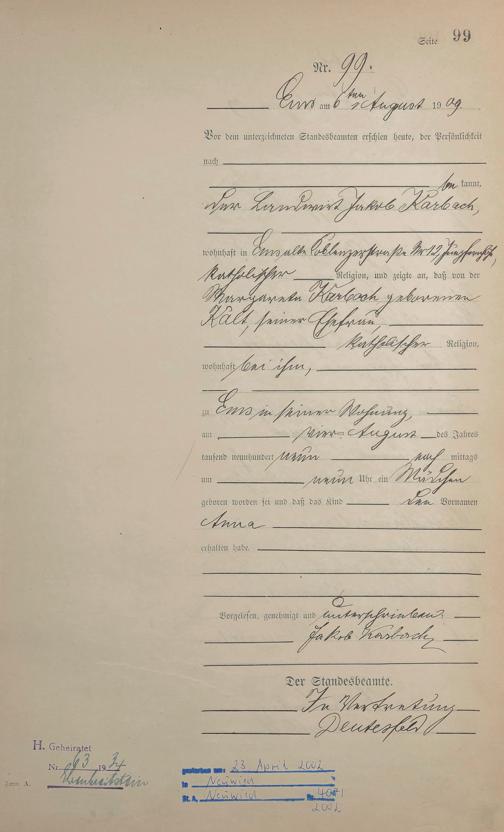 Seite 99
Nr. 99.
Ems am 6ten August 1909
Vor dem unterzeichneten Standesbeamten erschien heute, der Persönlichkeit
nach
bekannt,
der Landwirt Jakob Karbach,
wohnhaft in Ems, alte Coblenzerstraße Nr 12,
katholischer Religion, und zeigte an, daß von der
Margareta Karbach geborenen
Kalt, seiner Ehefrau,
katholischer Religion,
wohnhaft bei ihm,
zu Ems in seiner Wohnung,
am vier August des Jahres
tausend neunhundert neun nach mittags
um neun Uhr ein Mädchen
geboren worden sei und daß das Kind den Vornamen
Anna
erhalten habe.
Vorgelesen, genehmigt und unterschrieben
Jakob Karbach
Der Standesbeamte.
In Vertretung
H. Geheiratet
Nr. 63 1934
Form. A.
gestorben am: 23. April 2002
in Neuwied
St. A. Neuwied Nr.
2002